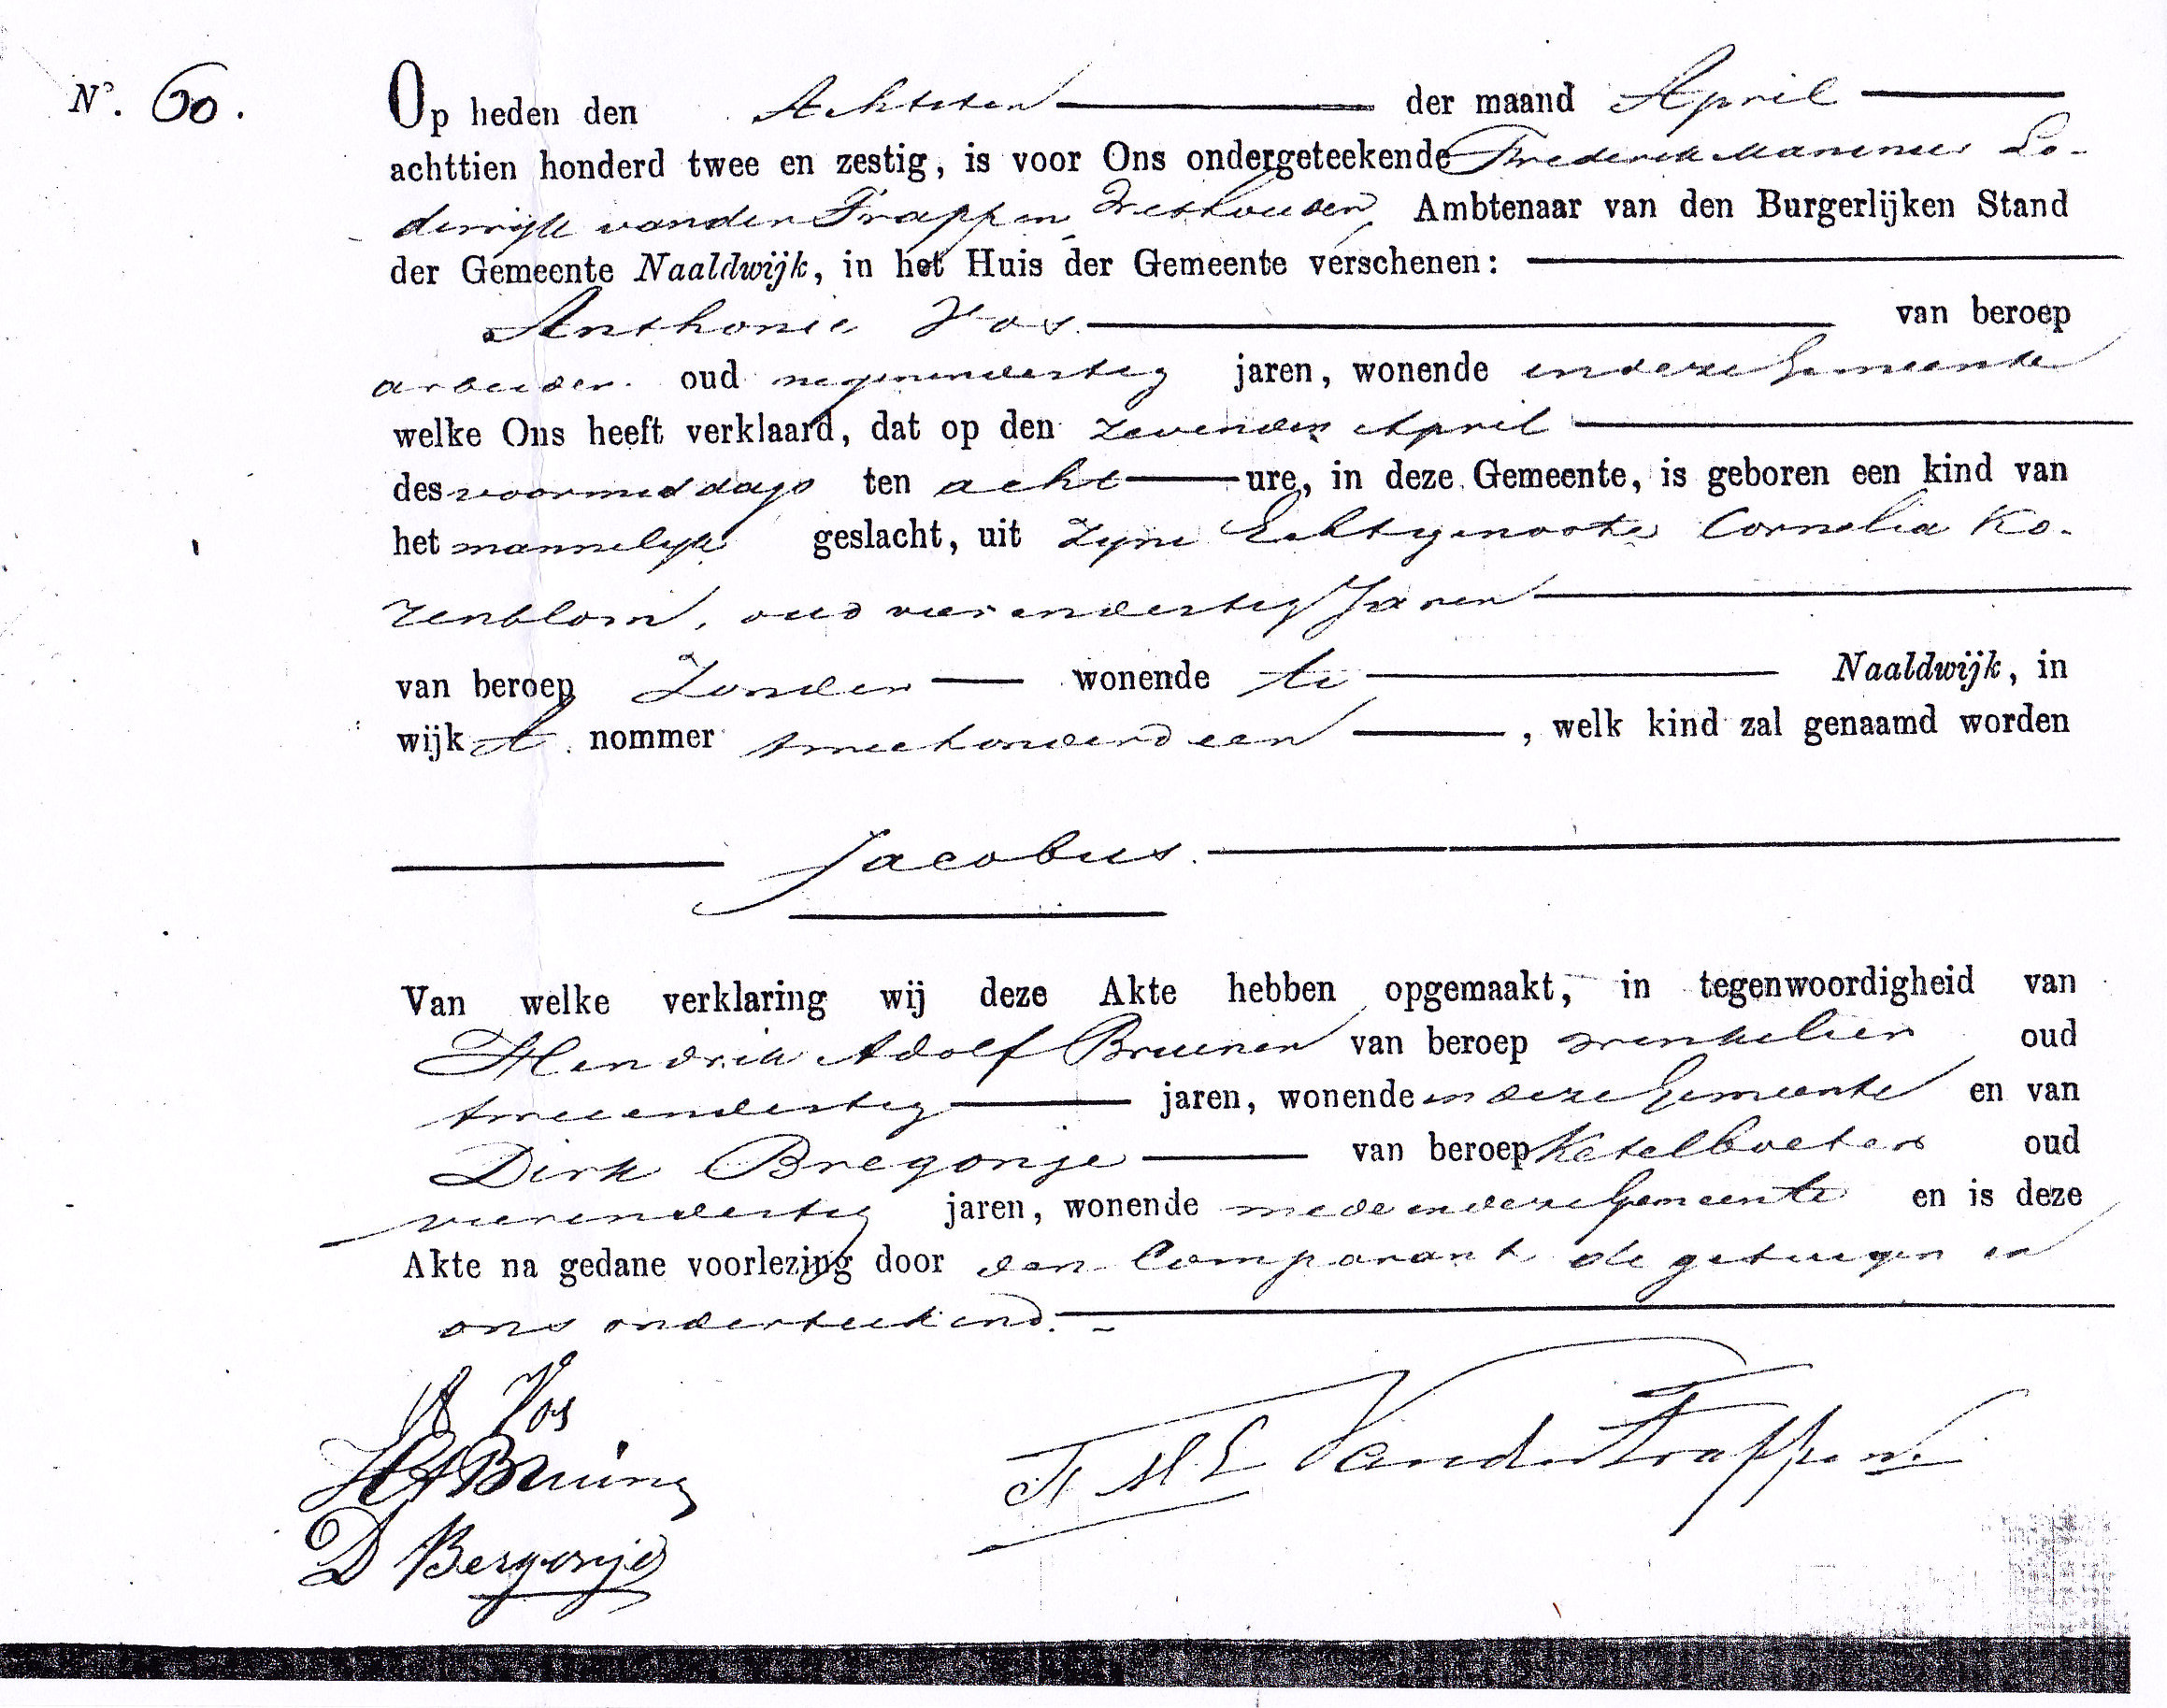 Nº. 60.
Op heden den Achtsten der maand April
achttien honderd twee en zestig, is voor Ons ondergeteekende Frederik Marinus Lo-
derwijk van der Trappen, Wethouder, Ambtenaar van den Burgerlijken Stand
der Gemeente Naaldwijk, in het Huis der Gemeente verschenen:
Anthonie Vos. van beroep
arbeider. oud negenendertig jaren, wonende in deze Gemeente
welke Ons heeft verklaard, dat op den zevenden April
des voormiddags ten acht ure, in deze Gemeente, is geboren een kind van
het mannelijk geslacht, uit zyne Echtgenoote Cornelia Ko-
zenblom, oud vier en dertig Jaren
van beroep Zonder wonende te Naaldwijk, in
wijk A. nommer tweehonderd een , welk kind zal genaamd worden
Jacobus.
Van welke verklaring wij deze Akte hebben opgemaakt, in tegenwoordigheid van
Hendrik Adolf Bruinen van beroep winkelier oud
tweeendertig jaren, wonende in deze Gemeente en van
Dirk Bregonje van beroep Ketelboeter oud
vierendertig jaren, wonende mede in deze Gemeente en is deze
Akte na gedane voorlezing door den Comparant de getuigen en
ons onderteekend.
A Vos
HA Bruining
D Bergonje
F M L Van der Trappen